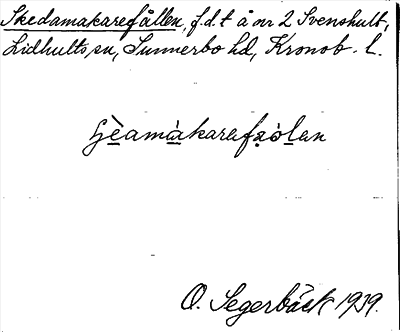 Skedamakarefållen, f.d.t å nr 2 Svenshult,
Lidhults sn, Sunnerbo hd, Kronob. l.
O. Segerbäck 1939.